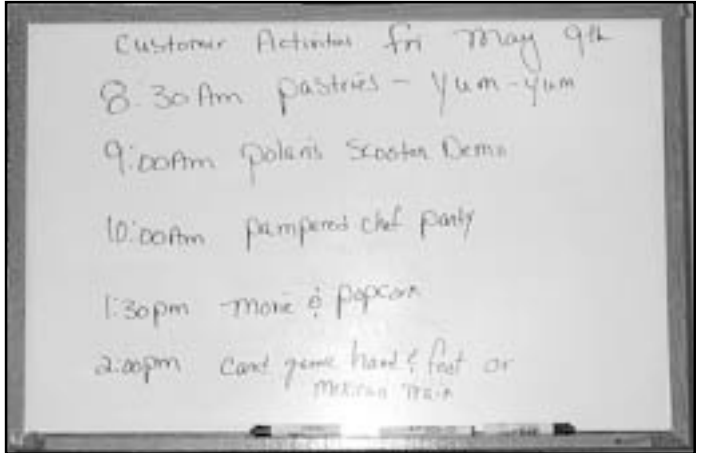 Customer Activities fri May 9th
8:30 Am pastries - Yum-yum
9:00 Am Polaris Scooter Demo
10:00 Am pampered chef party
1:30 pm movie & popcorn
2:00 pm Card game hand & foot or
Mexican Train